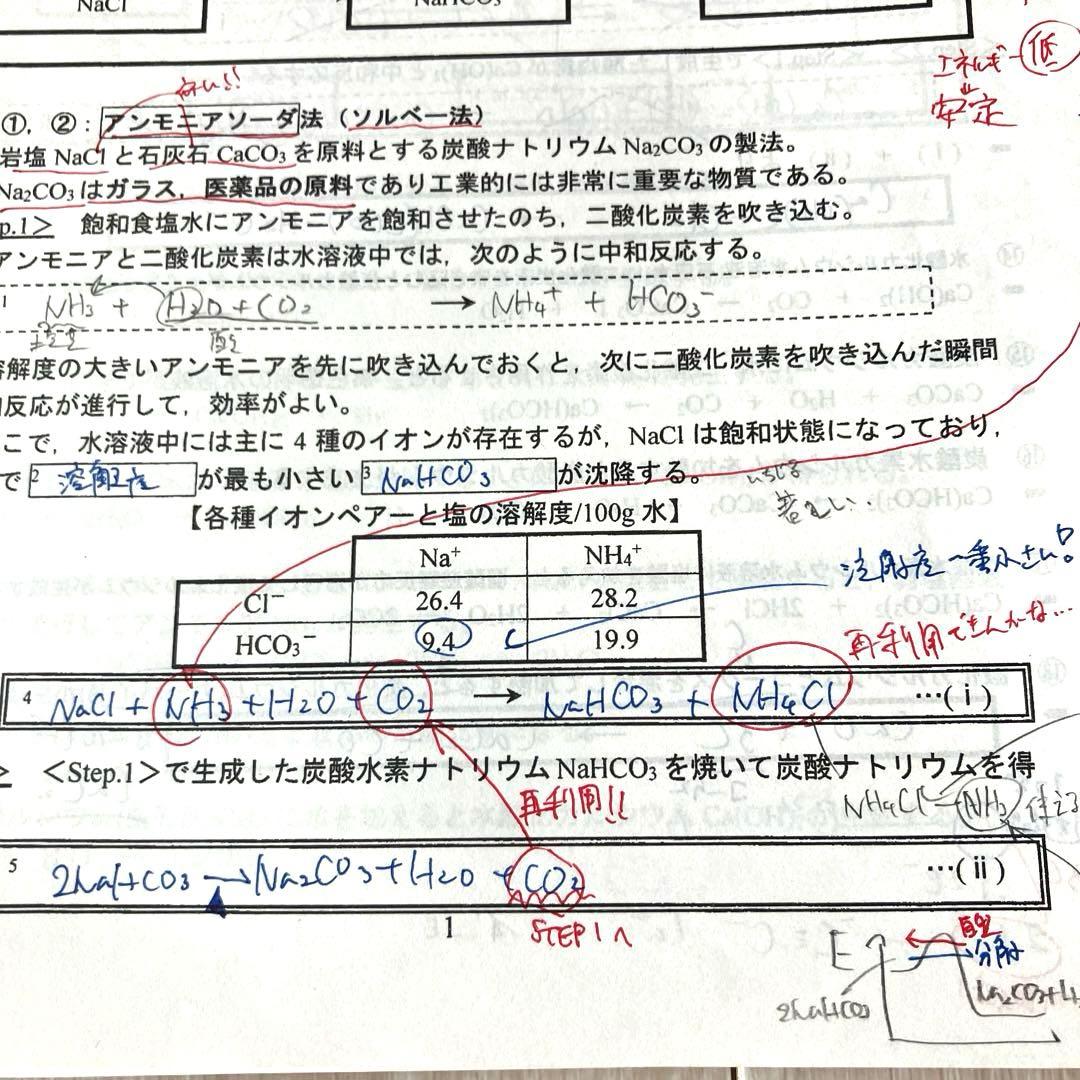 NaCl
NaHCO₃
エネルギー 低
安定
安い!!
①，②：アンモニアソーダ法（ソルベー法）
岩塩 NaCl と石灰石 CaCO₃ を原料とする炭酸ナトリウム Na₂CO₃ の製法。
Na₂CO₃ はガラス，医薬品の原料であり工業的には非常に重要な物質である。
p.1＞ 飽和食塩水にアンモニアを飽和させたのち，二酸化炭素を吹き込む。
アンモニアと二酸化炭素は水溶液中では，次のように中和反応する。
1 NH₃ + H₂O + CO₂ → NH₄⁺ + HCO₃⁻
塩基 酸
溶解度の大きいアンモニアを先に吹き込んでおくと，次に二酸化炭素を吹き込んだ瞬間
反応が進行して，効率がよい。
こで，水溶液中には主に 4 種のイオンが存在するが，NaCl は飽和状態になっており，
で 2 溶解度 が最も小さい 3 NaHCO₃ が沈降する。
【各種イオンペアーと塩の溶解度/100g 水】
Na⁺ NH₄⁺
Cl⁻ 26.4 28.2
HCO₃⁻ 9.4 19.9
一番小さい!
再利用できんかな…
4 NaCl + NH₃ + H₂O + CO₂ → NaHCO₃ + NH₄Cl …(ⅰ)
＞ ＜Step.1＞で生成した炭酸水素ナトリウム NaHCO₃ を焼いて炭酸ナトリウムを得
再利用!!
NH₄Cl NH₃ 使える
5 2NaHCO₃ → Na₂CO₃ + H₂O + CO₂ …(ⅱ)
1
STEP 1 へ
E
分解
2NaHCO₃
Na₂CO₃+H₂